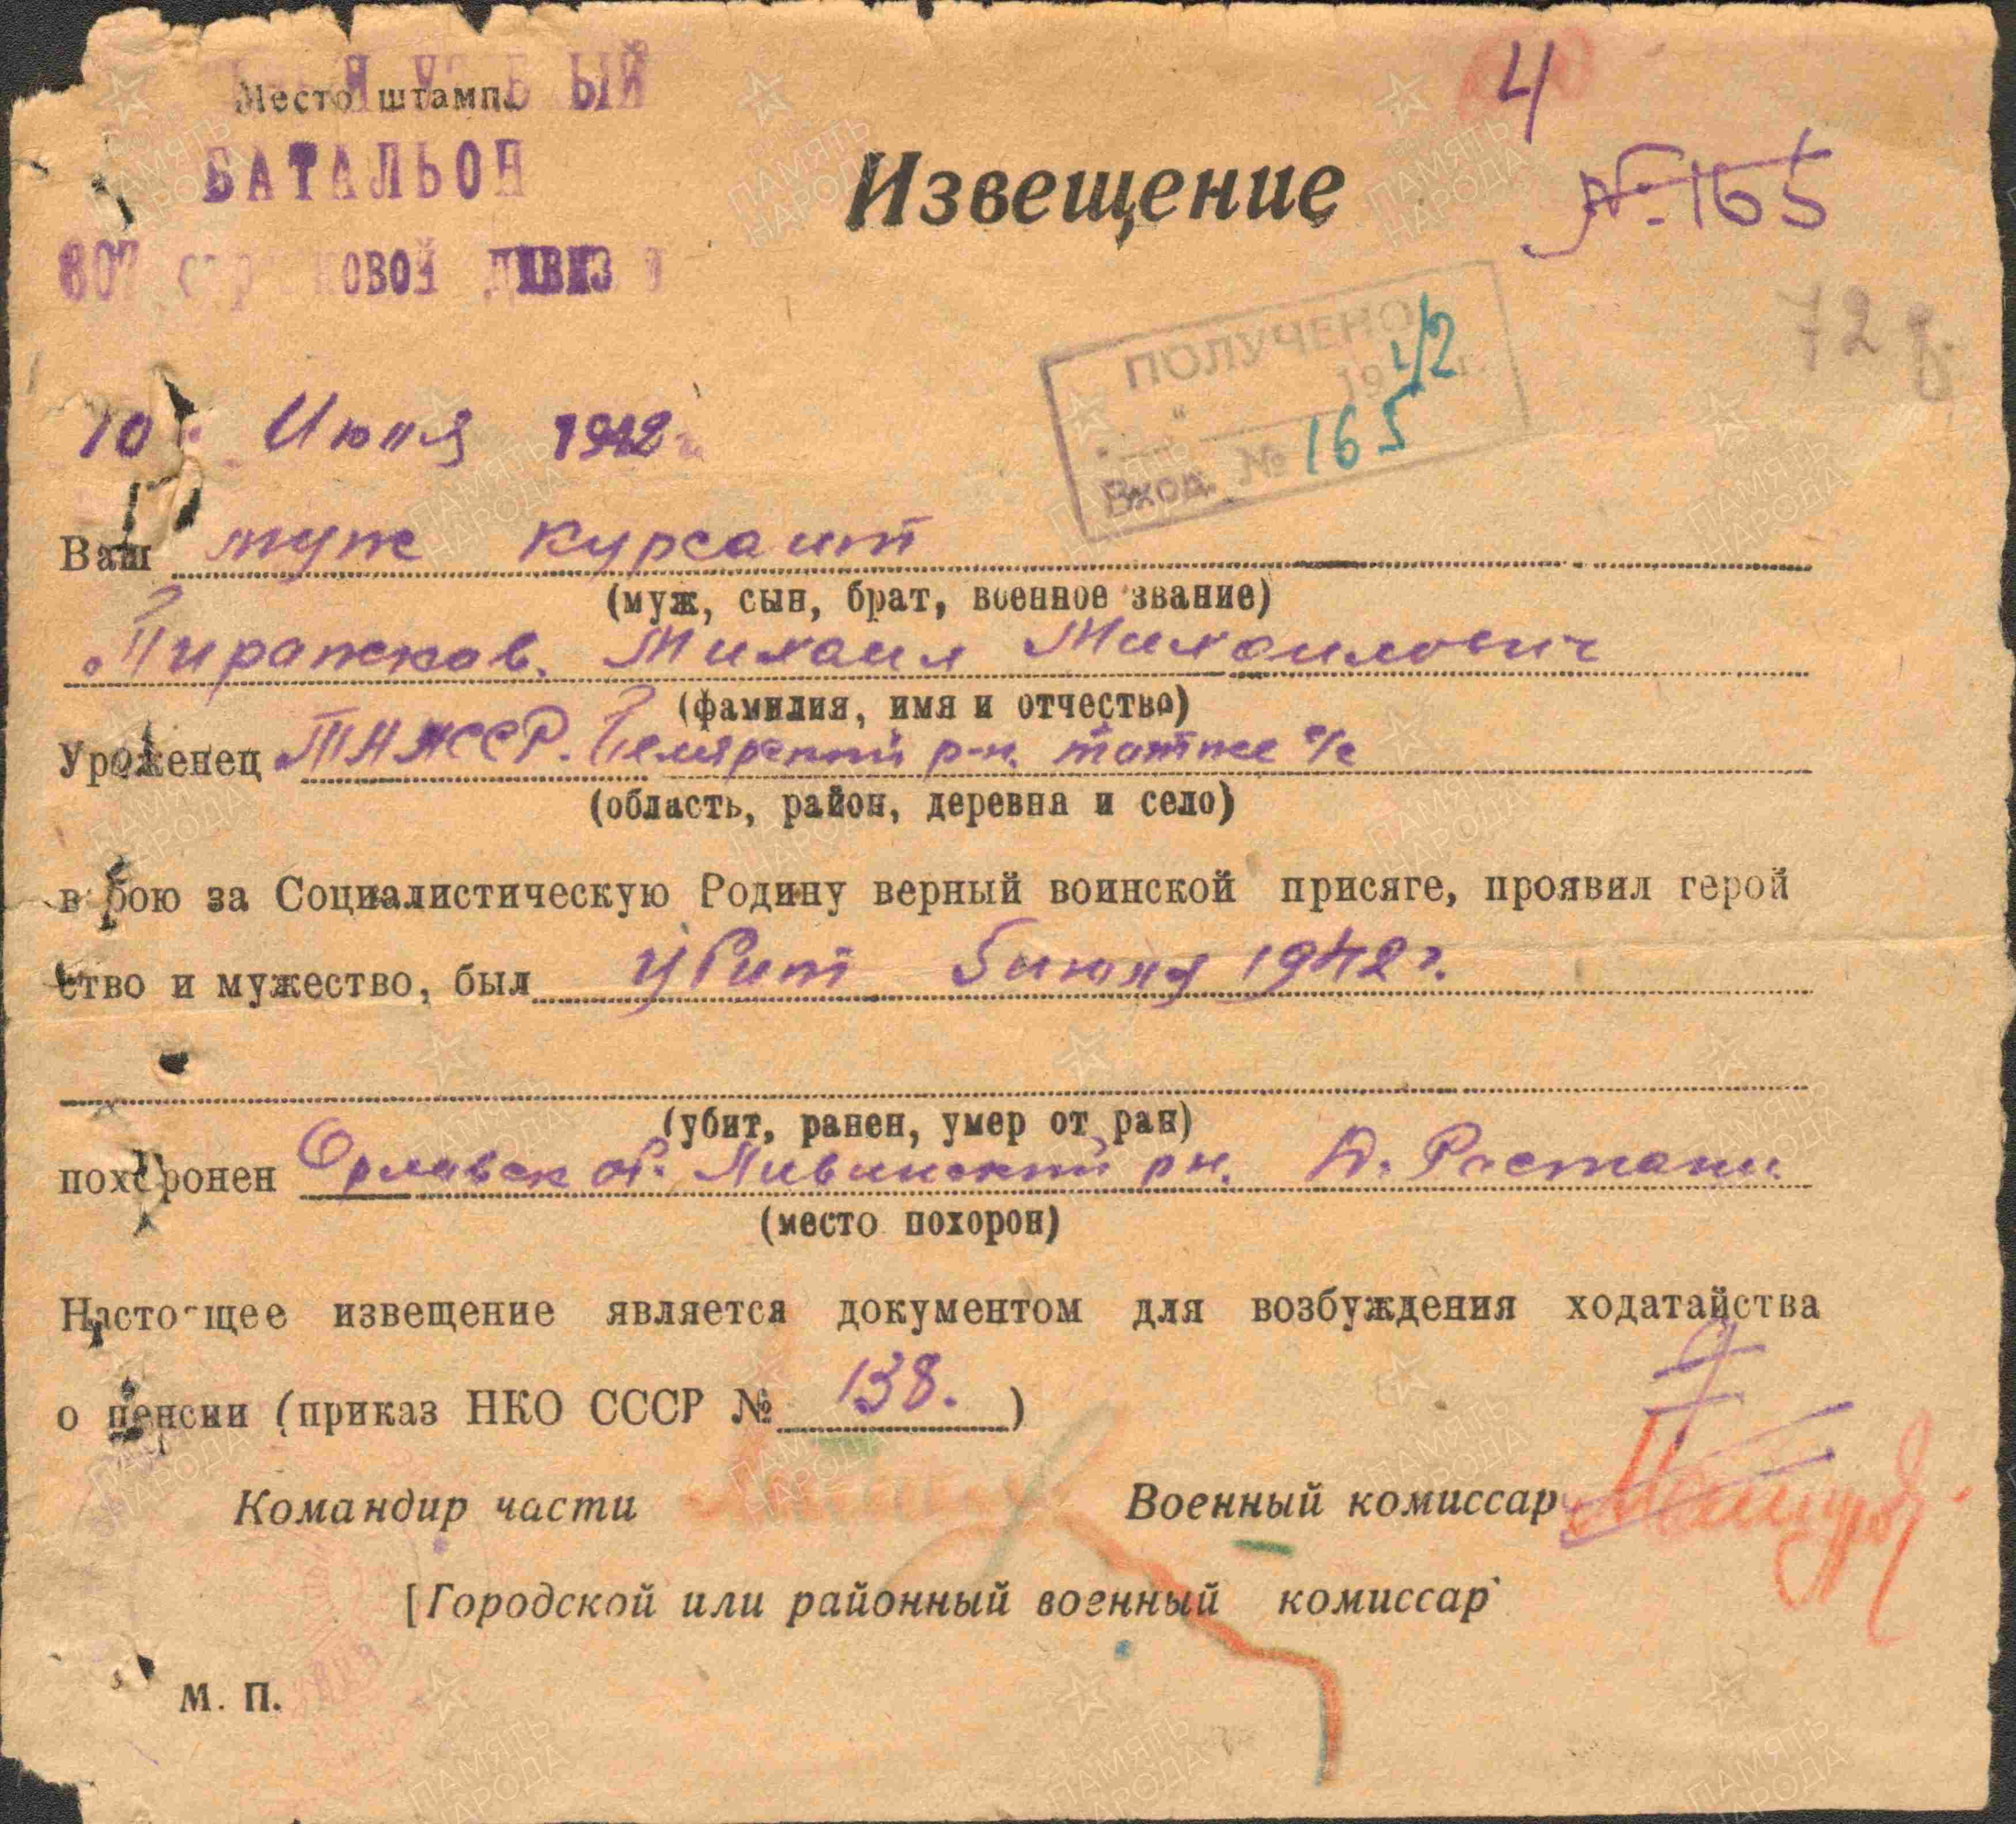 Место штампа
БАТАЛЬОН
807 стрелковой дивизии
4
Извещение
№ 165
72
ПОЛУЧЕНО
1942 г.
Вход. № 165
10 Июня 1942
Ваш муж курсант
(муж, сын, брат, военное звание)
Пиражков. Михаил Михаилович
(фамилия, имя и отчество)
Уроженец р-н. с/с
(область, район, деревня и село)
в бою за Социалистическую Родину верный воинской присяге, проявил герой
ство и мужество, был убит 5 июня 1942 г.
(убит, ранен, умер от ран)
похоронен Орловск об. Ливинский р н. Д. Росташи.
(место похорон)
Настоящее извещение является документом для возбуждения ходатайства
о пенсии (приказ НКО СССР № 138. )
Командир части Военный комиссар
[Городской или районный военный комиссар
М. П.
ПАМЯТЬ НАРОДА